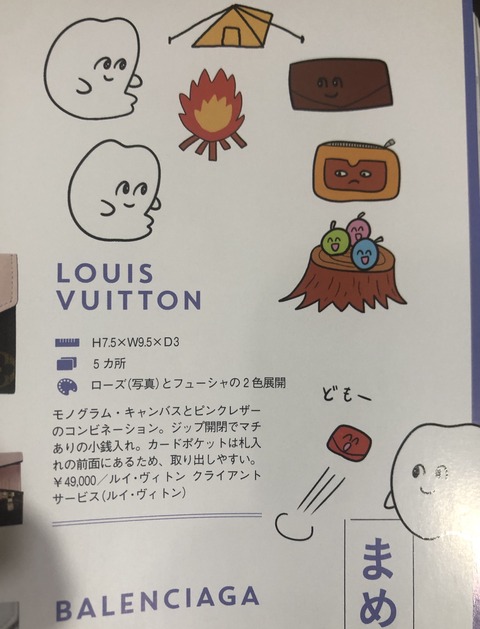 LOUIS
VUITTON
H7.5×W9.5×D3
5カ所
ローズ(写真)とフューシャの2色展開
モノグラム・キャンバスとピンクレザー
のコンビネーション。ジップ開閉でマチ
ありの小銭入れ。カードポケットは札入
れの前面にあるため、取り出しやすい。
¥49,000/ルイ・ヴィトン クライアント
サービス(ルイ・ヴィトン)
どもー
まめ
BALENCIAGA